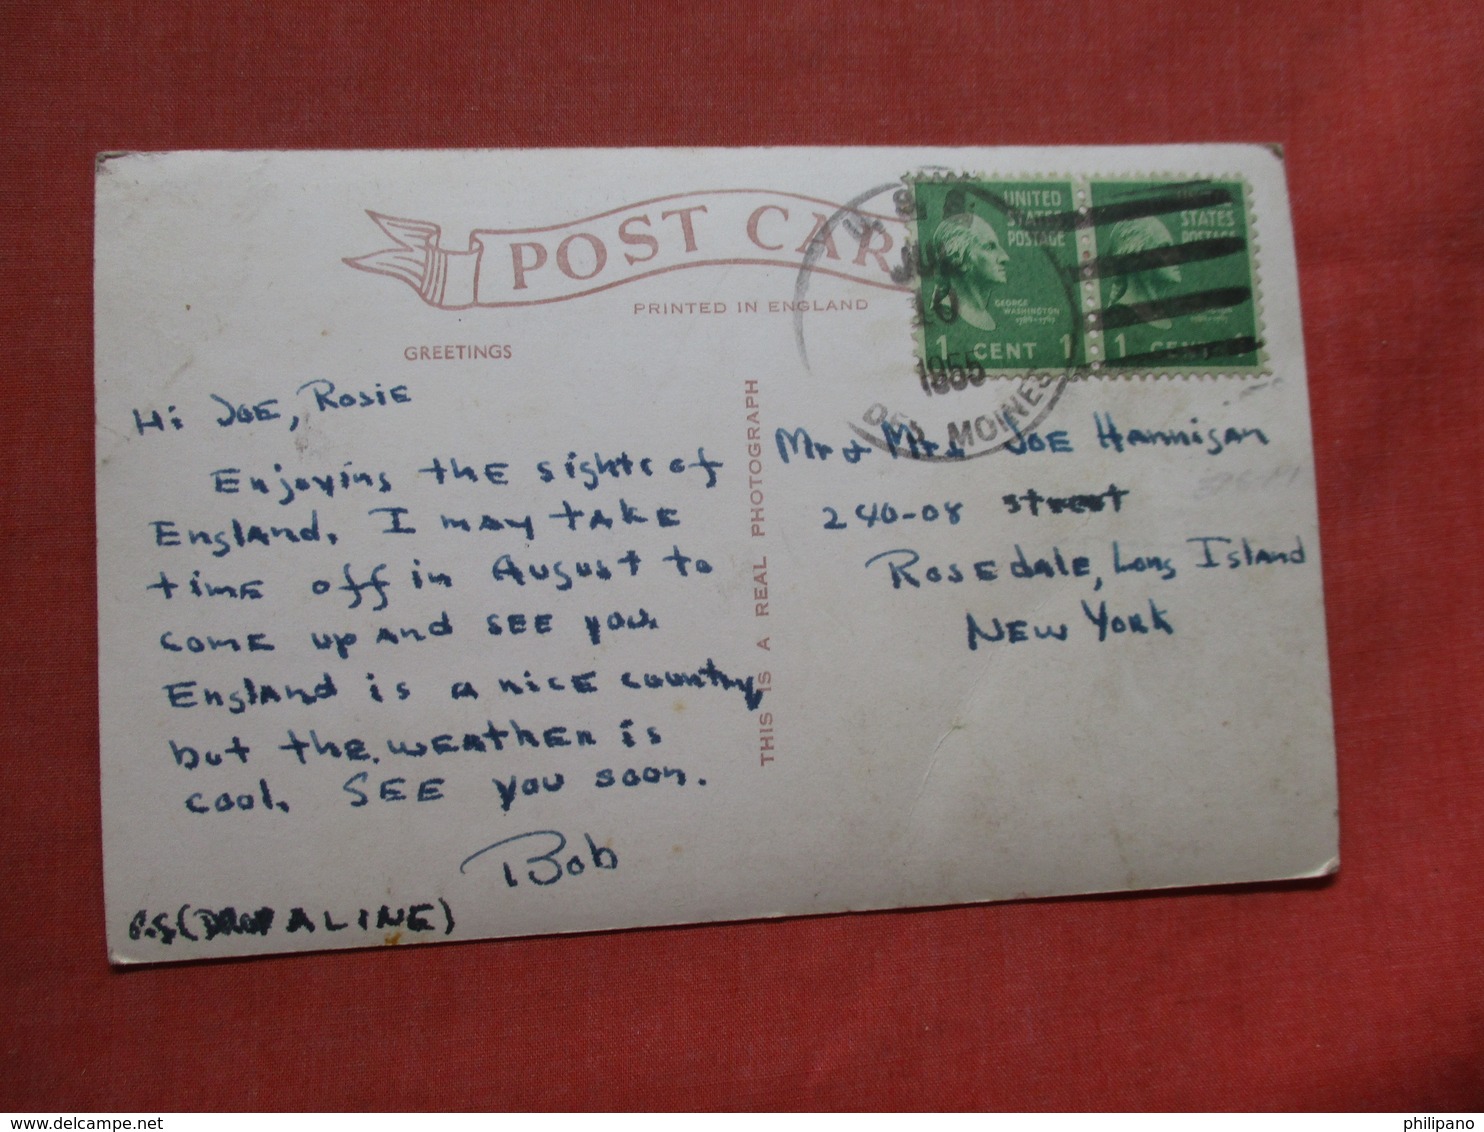 POST CAR
PRINTED IN ENGLAND
GREETINGS
Hi JOE, Rosie
Enjoying the sights of
England. I may take
time off in August to
come up and see you.
England is a nice country
but the weather is
cool. SEE you soon.
Bob
P.S. (DROP A LINE)
THIS IS A REAL PHOTOGRAPH
U.S.S.
10
1955
DES MOINES
UNITED
STATES
POSTAGE
GEORGE
WASHINGTON
1 CENT 1
STATES
POSTAGE
1 CENT 1
Mr & Mrs JOE Hannigan
240-08 street
Rosedale, Long Island
New York
philipano
delcampe.net